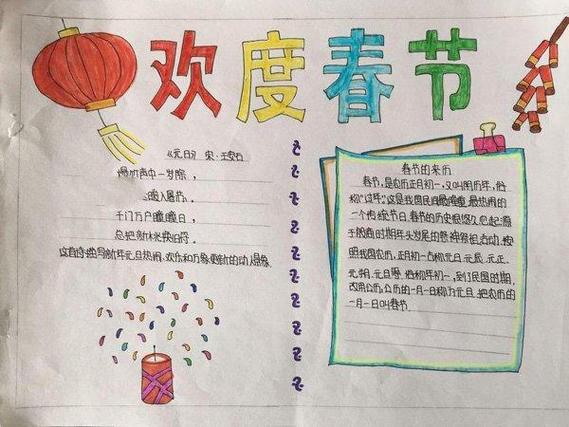 欢度春节
《元日》 宋·王安石
爆竹声中一岁除，
暖入屠苏。
千门万户曈曈日，
总把新桃换旧符。
这首诗描写新年元旦热闹、欢乐和万象更新的动人景象
春节的来历
春节，是农历正月初一，又叫阴历年，俗
称"过年"，这是我国民间最隆重、最热闹的
一个传统节日。春节的历史很悠久，它起源
于殷商时期年头岁尾的祭神祭祖活动。按
照我国农历，正月初一古称元日、元辰、元正、
元朔、元旦等，俗称年初一，到了民国时期，
改用公历，公历的一月一日称为元旦，把农历的
一月一日叫春节。